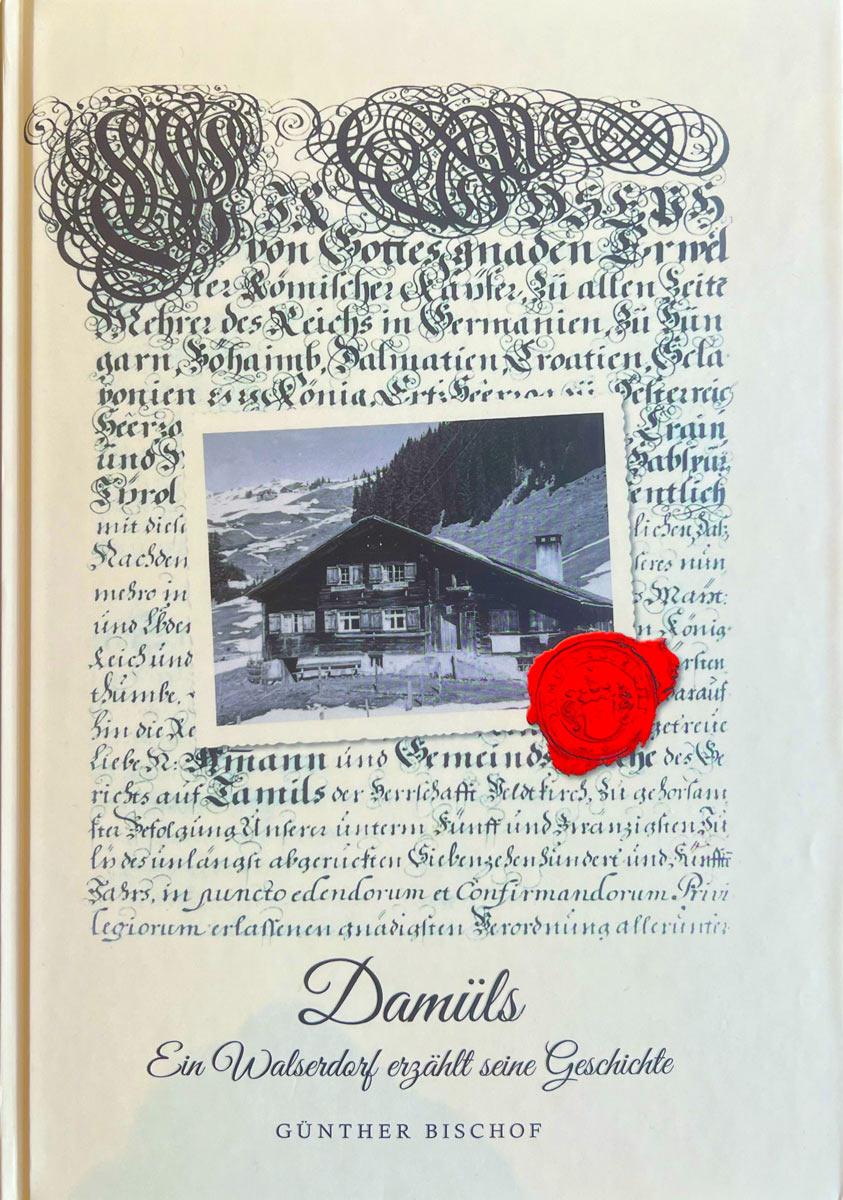 Wir Joseph
von Gottes gnaden Erwël
ter Römischer Kaÿser, Zü allen Zeite
Mehrer des Reichs in Germanien, Zü Hün
garn, Böhaimb, Dalmatien, Croatien, Scla
vonien König, Ertz Heerzog zü Österreic
Heerzo Crain
und Habspür
Tÿrol entlich
mit diese
Nachdem seres nün
mehro in
und
Reich und rsten
thumbe, darauf
hin die Re getreüe
Liebe N: Amann und Gemeinds des Ge
richts auf Tamils der Herrschafft Veldtkirch, Zü gehorsam
ster Befolgüng Ünserer ünterm Fünff und Zwänzigsten Jü
lÿ des ünlängst abgerückten Siebenzehenhündert und Fünfft
Jahrs, in puncto edendorum et Confirmandorum Privi
legiorum erlassenen gnädigsten Verordnüng allerünter
Damüls
Ein Walserdorf erzählt seine Geschichte
GÜNTHER BISCHOF